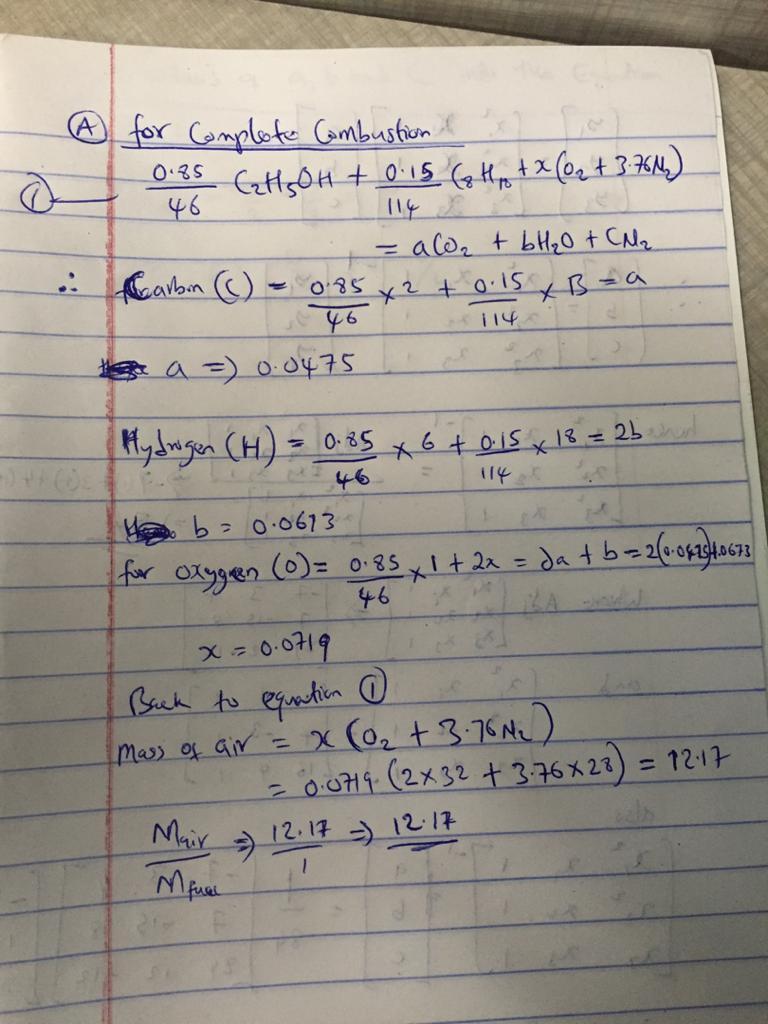 Ⓐ for Complete Combustion
① 0.85/46 C2H5OH + 0.15/114 C8H18 + x(O2 + 3.76N2)
= aCO2 + bH2O + CN2
∴ Carbon (C) = 0.85/46 × 2 + 0.15/114 × B = a
a => 0.0475
Hydrogen (H) = 0.85/46 × 6 + 0.15/114 × 18 = 2b
b = 0.0673
for oxygen (O) = 0.85/46 × 1 + 2x = 2a + b = 2(0.0475)+.0673
x = 0.0719
Back to equation ①
Mass of air = x(O2 + 3.76N2)
= 0.0719 (2×32 + 3.76×28) = 12.17
Mair/Mfuel => 12.17/1 => 12.17